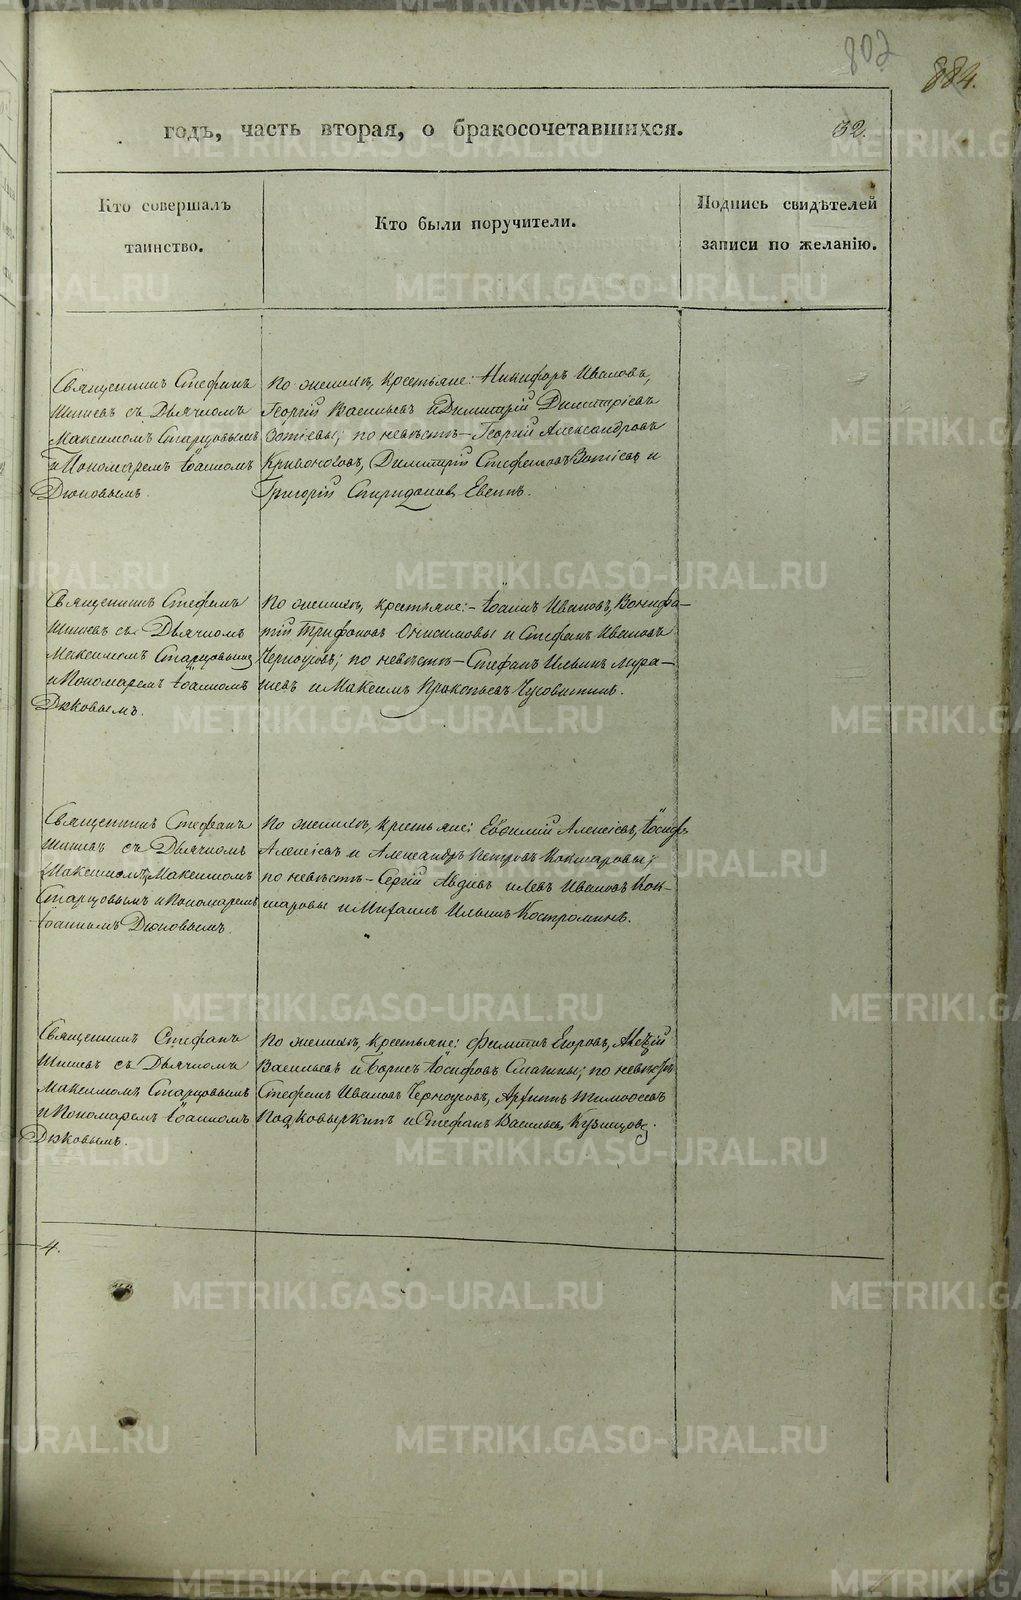 802
884.
годъ, часть вторая, о бракосочетавшихся. 32.
Кто совершалъ
таинство.
Кто были поручители.
Подпись свидѣтелей
записи по желанію.
Священникъ Стефанъ
Шишевъ съ Дьячкомъ
Максимомъ Старцовымъ
и Пономаремъ Іоанномъ
Дюковымъ.
По женихѣ, крестьяне: Никифоръ Ивановъ,
Георгій Васильевъ и Димитрій Димитріевъ
Зотіевы; по невѣстѣ – Георгій Александровъ
Кривоноговъ, Димитрій Стефановъ Зотіевъ и
Григорій Спиридоновъ
Священникъ Стефанъ
Шишевъ съ Дьячкомъ
Максимомъ Старцовымъ
и Пономаремъ Іоанномъ
Дюковымъ.
По женихѣ, крестьяне: – Іоаннъ Ивановъ, Вонифа–
тій Трифоновъ Онисимовы и Стефанъ Ивановъ
Черноуровъ; по невѣстѣ – Стефанъ Ильинъ Мура–
шевъ и Максимъ Прокопьевъ Чусовитинъ.
Священникъ Стефанъ
Шишевъ съ Дьячкомъ
Максимомъ
Старцовымъ и Пономаремъ
Іоанномъ Дюковымъ.
По женихѣ, крестьяне: Евѳимій Алексіевъ, Іосифъ
Алексіевъ и Александръ Петровъ Кокшаровы;
по невѣстѣ – Сергій Авдіевъ и Левъ Ивановъ Кок–
шаровы и Михаилъ Ильинъ Костроминъ.
Священникъ Стефанъ
Шишевъ съ Дьячкомъ
Максимомъ Старцовымъ
и Пономаремъ Іоанномъ
Дюковымъ.
По женихѣ, крестьяне: Филиппъ Егоровъ, Алексій
Васильевъ и Борисъ Іосифовъ Смагины; по невѣстѣ
Стефанъ Ивановъ Черноуровъ, Архипъ Тимофеевъ
Подковыркинъ и Стефанъ Васильевъ Кузнецовъ.
4.
METRIKI.GASO-URAL.RU